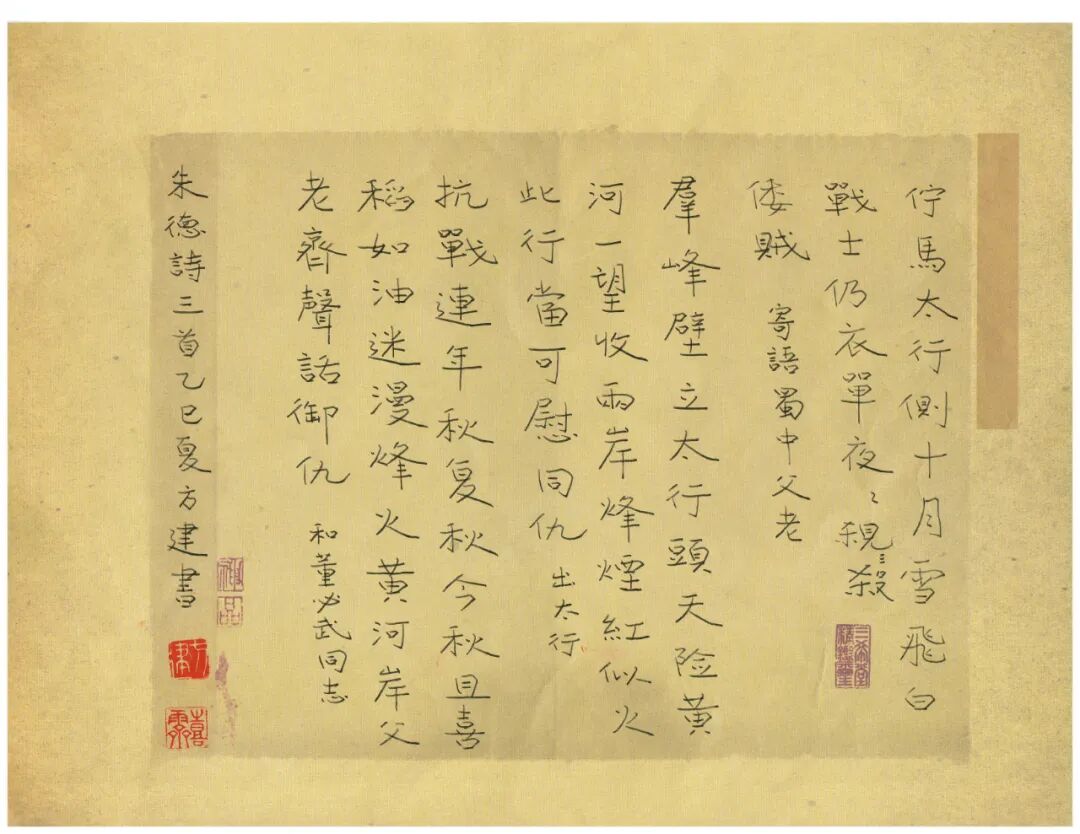 佇馬太行側十月雪飛白
戰士仍衣單夜〻殺
倭賊 寄語蜀中父老
羣峰壁立太行頭天险黄
河一望收兩岸烽煙紅似火
此行當可慰同仇 出太行
抗戰連年秋复秋今秋且喜
稻如油迷漫烽火黄河岸父
老齊聲話御仇 和董必武同志
朱德詩三首乙巳夏方建書
三希堂精鑑璽
神品
方建